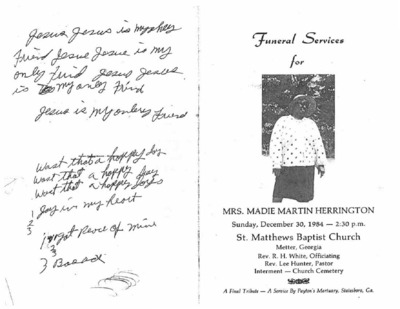 Jesus Jesus is my only
Friend Jesus Jesus is my
only Frind Jesus Jesus
is my only Frind
Jesus is my only Friend
Wast that a happy day
Wast that a happy day
Wast that a happy day
1 Joy in my heart
2
3
1 got Peace of mine
2
3
3
Funeral Services
for
MRS. MADIE MARTIN HERRINGTON
Sunday, December 30, 1984 — 2:30 p.m.
St. Matthews Baptist Church
Metter, Georgia
Rev. R. H. White, Officiating
Rev. Lee Hunter, Pastor
Interment — Church Cemetery
A Final Tribute — A Service By Payton's Mortuary, Statesboro, Ga.